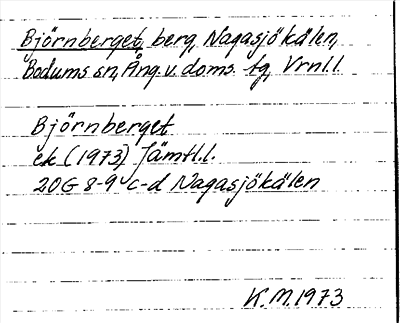 Björnberget, berg, Nagasjökälen,
Bodums sn, Ång. v. doms. tg, Vrnl. l.
Björnberget
ek (1973) Jämtl. l.
20G 8-9 c-d Nagasjökälen
K.M. 1973